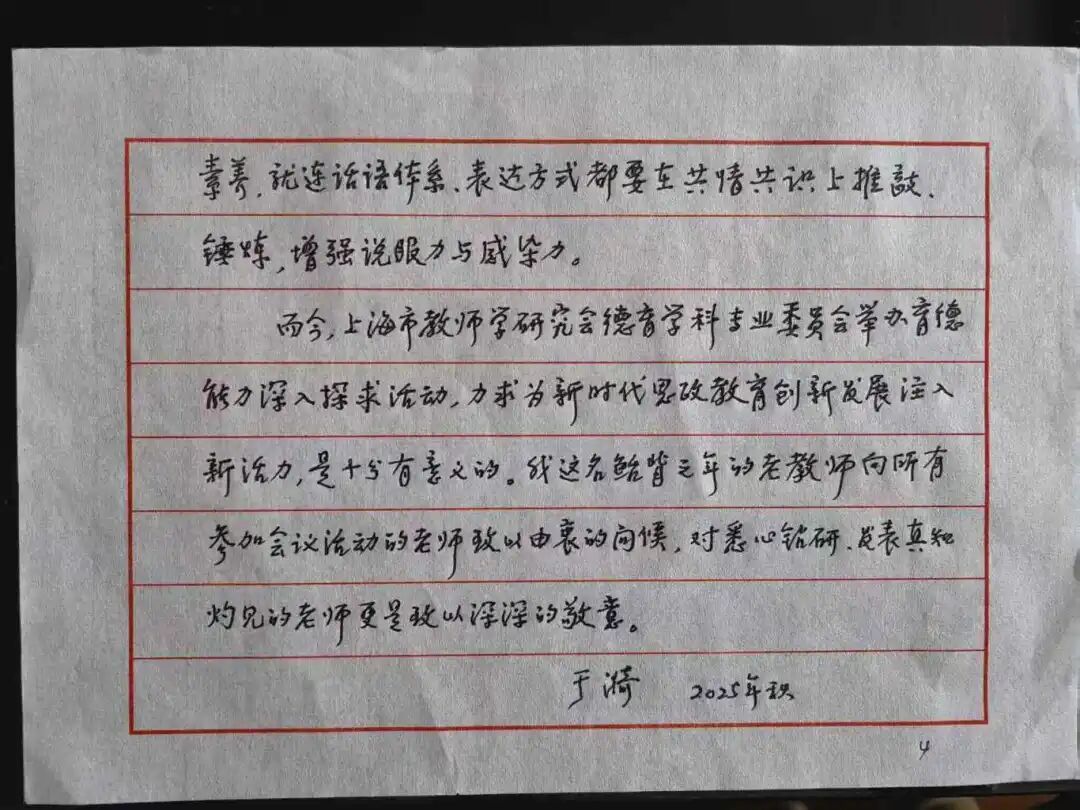 素养，就连话语体系、表达方式都要在共情共识上推敲、
锤炼，增强说服力与感染力。
而今，上海市教师学研究会德育学科专业委员会举办育德
能力深入探求活动，力求为新时代思政教育创新发展注入
新活力，是十分有意义的。我这名鲐背之年的老教师向所有
参加会议活动的老师致以由衷的问候，对悉心钻研、发表真知
灼见的老师更是致以深深的敬意。
于漪 2025年秋
4